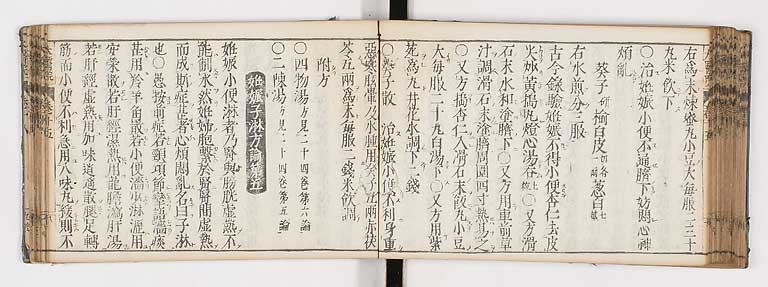 右爲末煉蜜丸小豆大每服二三十
丸米飲下
○治姙娠小便不通臍下妨悶心神
煩亂
葵子研 楡白皮切各一兩 葱白七莖
右水煎分三服
古今錄驗姙娠不得小便杏仁去皮
尖炒黃搗丸燈心湯吞 ○又方滑
石末水和塗臍下○又方用車前草
汁調滑石末塗臍周圍四寸熱易之
○又方搗杏仁入滑石末飯丸小豆
大每服二十丸白湯下○又方用紫
菀爲丸井花水調下二錢
○葵子散 治姙娠小便不利身重
惡寒眩暈及水腫用葵子五兩赤茯
苓三兩爲末每服二錢米飲調
附方
○四物湯方見二十四卷第六論
○二陳湯方見二十四卷第五論
姙娠子淋方論第五
姙娠小便淋者乃腎與膀胱虛熱不
能制水然姙婦胞繫於腎腎間虛熱
而成斯症甚者心煩悶亂名曰子淋
也○愚按前症若頸項筋攣語澀痰
甚用羚羊角散若小便澀少淋瀝用
安榮散若肝經濕熱用龍膽瀉肝湯
若肝經虛熱用加味逍遙散腿足轉
筋而小便不利急用八味丸緩則不